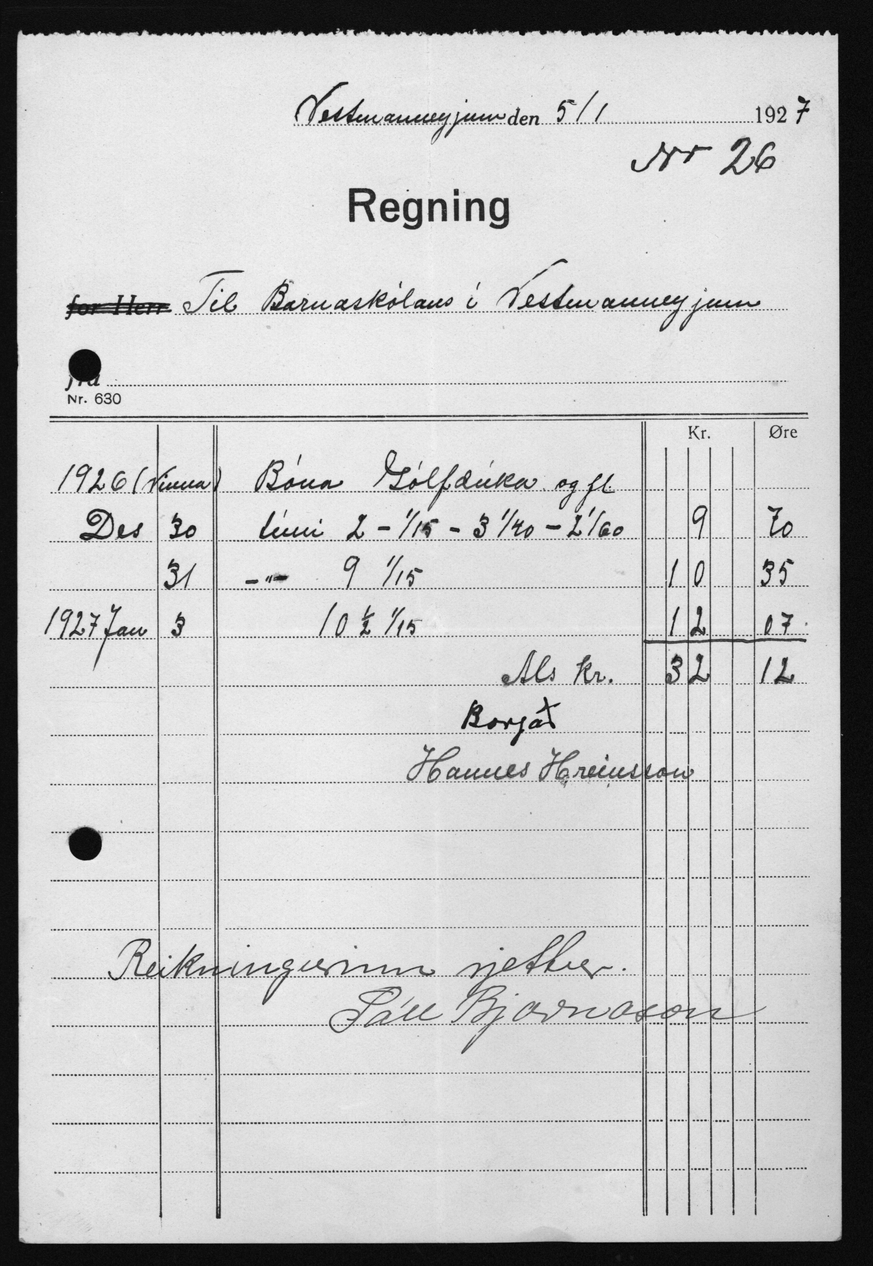 Vestmanneyjum den 5/1 1927
Nr 26
Regning
for Herr Til Barnaskólans í Vestmanneyjum
fra
Nr. 630
Kr. Øre
1926 (Vinna) Bóna Gólfdúka og fl
Des 30 tími 2 - 1/15 - 3 1/40 - 2 1/60 9 70
31 -"- 9 1/15 10 35
1927 Jan 3 10 ½ 1/15 12 07
Als kr. 32 12
Borgað
Hannes Hreinsson
Reikningurinn rjettur.
Páll Bjarnason